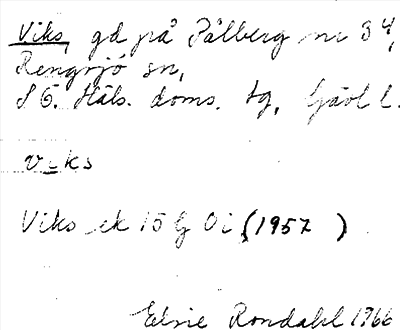 Viks, gd på Pålberg nr 3⁴,
Rengsjö sn,
S G. Häls. doms. tg, Gävl l.
viks
Viks ek 15 G 0 i (1957 )
Elsie Rondahl 1966